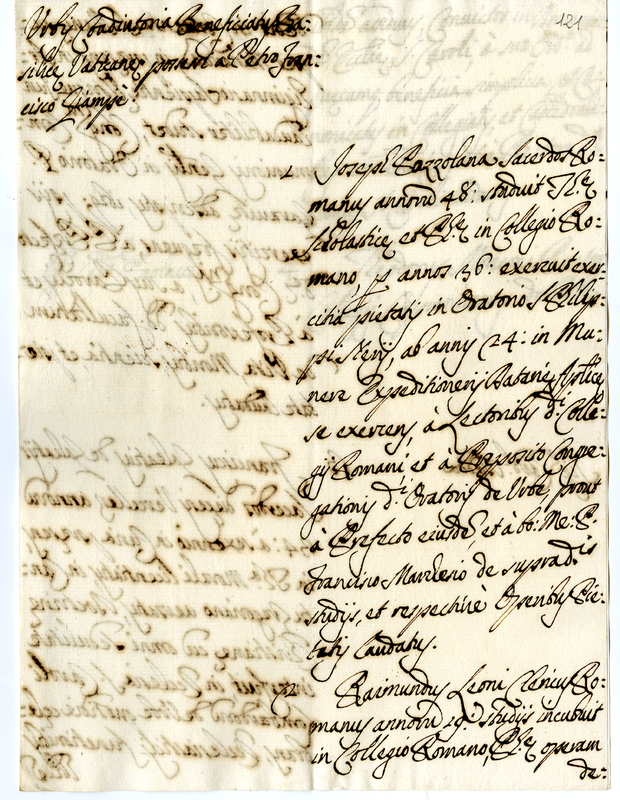 121
Urbis Coadiutoria Beneficiatus Ba:
silicę Vaticanę possessi à Petro Fran:
cisco Giampè:
1. Joseph Bazzolana Sacerdos Ro:
manus annorũ 48: studuit
Scholasticę, et in Collegio Ro:
mano, p annos 36: exercuit exer:
citia pietatis in Oratorio S. Philip:
pi Nerij, ab annis 24: in Mu:
nere Expeditionerij
se exercens, à Lectoribus d.i Colle:
gij Romani et à Preposito Congre:
gationis d.i Oratorij de Urbe, prout
à Prefecto eiusdẽ, et à bo: Me: P.
Francisco de suprad.is
studijs, et respectivè Operibus Pie:
tatis laudatus.
2. Raimundus Leoni Clericus Ro:
manus annorũ 29: studijs incubuit
in Collegio Romano, operam
de: